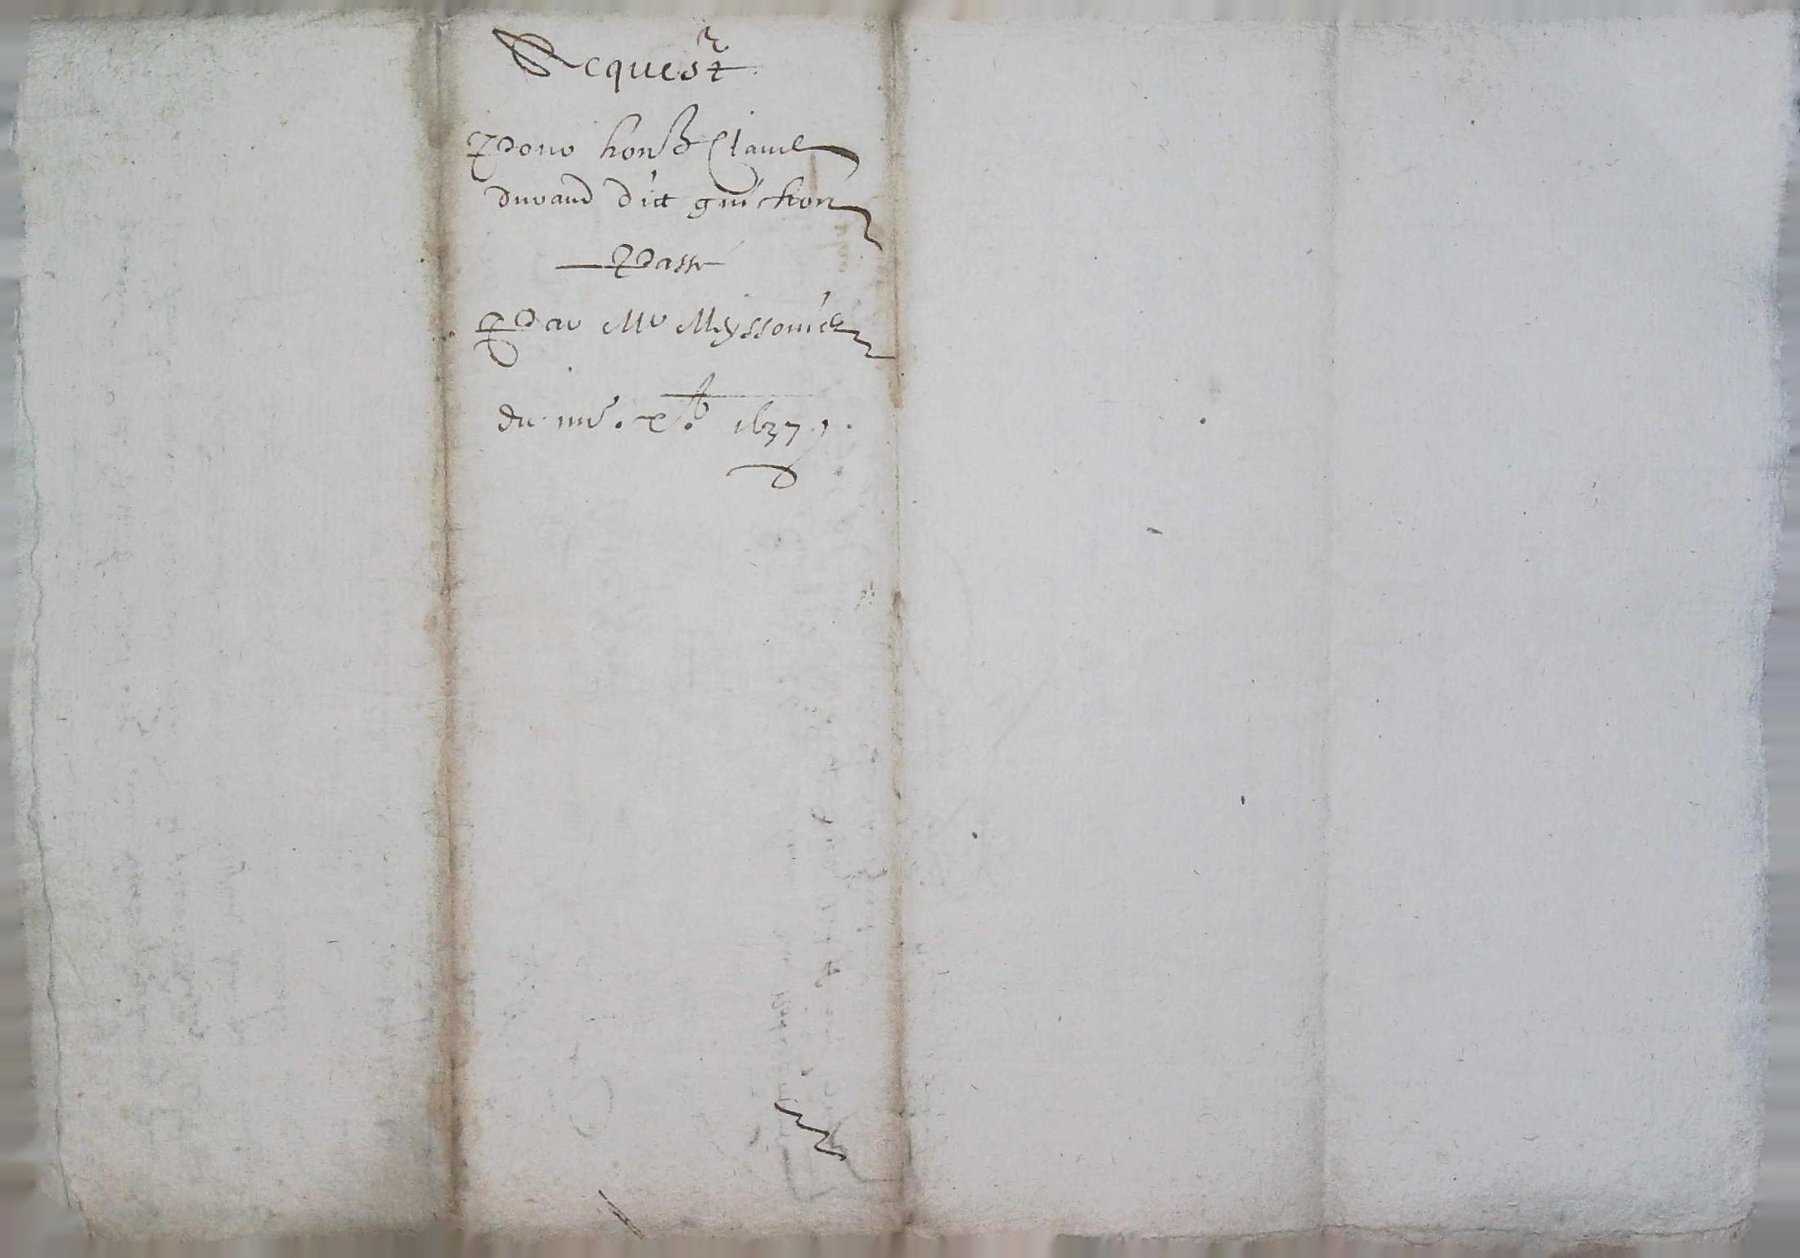 Requeste
Pour hon.ble Claude
durand dict guichon
Passé
Par Mr Meyssonier
du iiiie xbre 1637